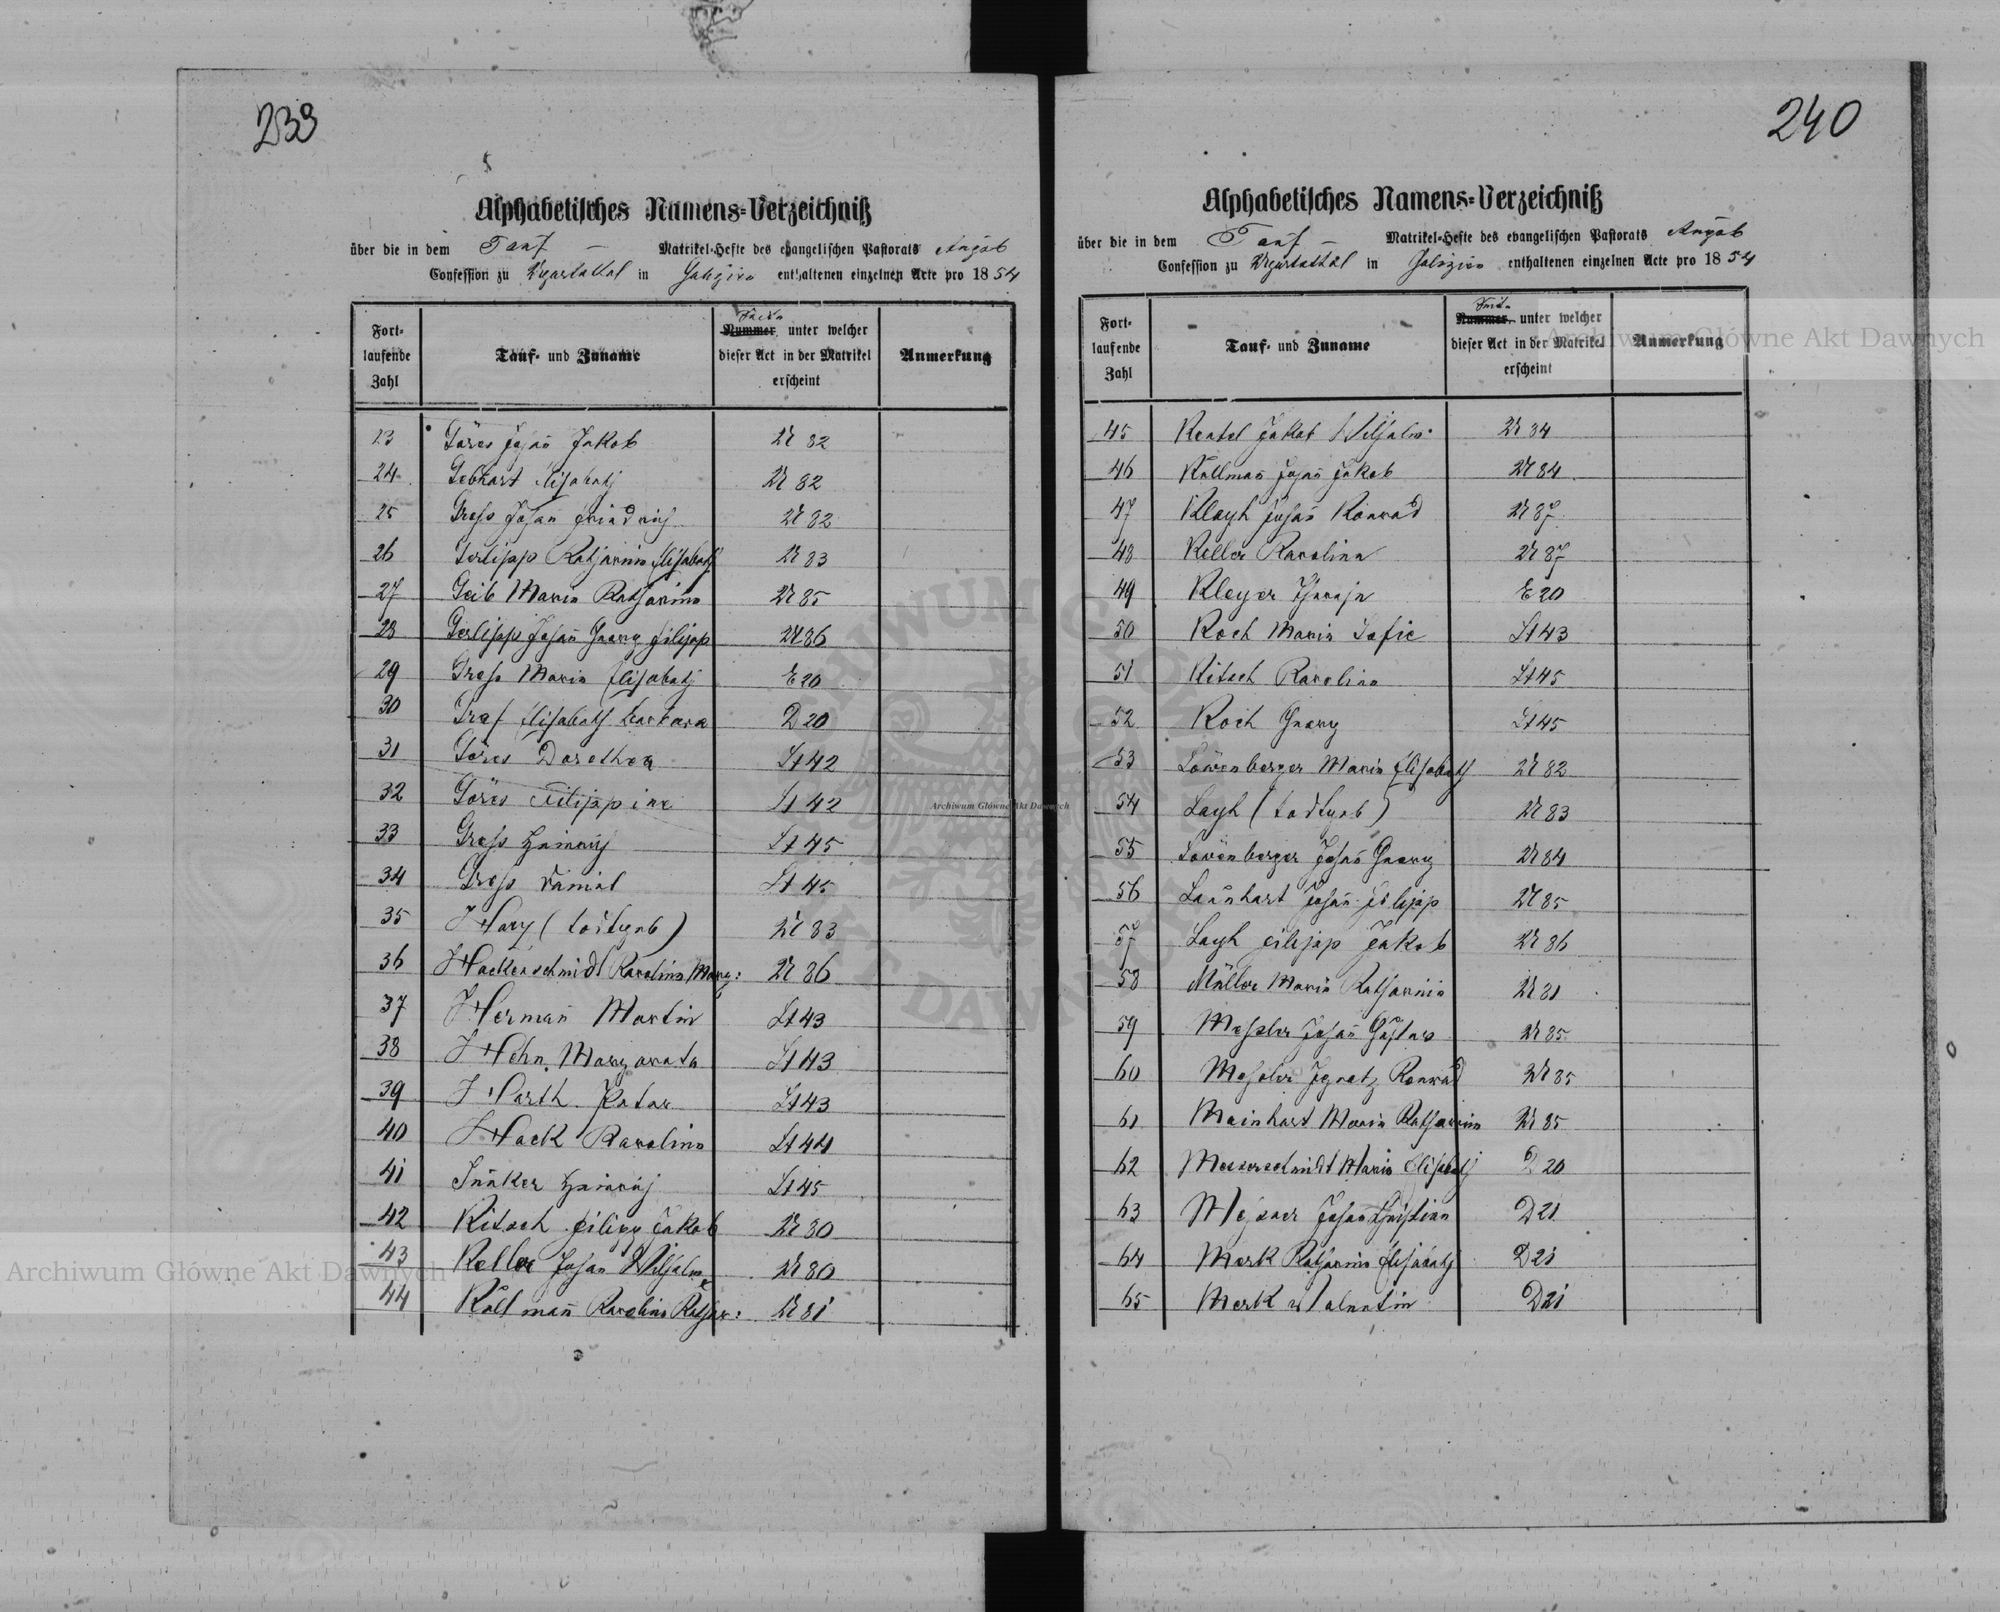 239
Alphabetisches Namens-Verzeichniß
über die in dem Tauf – Matrikel-Hefte des evangelischen Pastorats Augsb
Confession zu Ugartsthal in Galizien enthaltenen einzelnen Acte pro 1854
Fort-
laufende
Zahl
Tauf- und Zuname
Seite
Nummer unter welcher
dieser Act in der Matrikel
erscheint
Anmerkung
23 Göres Johañ Jakob U 82
24 Gebhart Elisabeth U 82
25 Gress Johañ Friedrich U 82
26 Gerlipp Katharina Elisabeth U 83
27 Geib Maria Katharina U 85
28 Gerlipp Johañ Georg Filipp U 86
29 Gress Maria Elisabeth E 20
30 Graf Elisabeth Barbara D 20
31 Göres Dorothea St 42
32 Göres Filippine St 42
33 Gress Heinrich St 45
34 Gress Daniel St 45
35 Hary (todtgeb) U 83
36 Hackenschmidt Karolina Marg: U 86
37 Hermañ Martin St 43
38 Hehn Margareta St 43
39 Harth Peter St 43
40 Hack Karolina St 44
41 Iñaker Heinrich St 45
42 Kitsch Filipp Jakob U 80
43 Keller Johañ Wilhelm U 80
44 Kollmañ Karolina Kathar: U 81
240
Alphabetisches Namens-Verzeichniß
über die in dem Tauf – Matrikel-Hefte des evangelischen Pastorats Augsb
Confession zu Ugartsthal in Galizien enthaltenen einzelnen Acte pro 1854
Fort-
laufende
Zahl
Tauf- und Zuname
Seite
Nummer unter welcher
dieser Act in der Matrikel
erscheint
Anmerkung
45 Jakob Wilhelm U 84
46 Kollmañ Johañ Jakob U 84
47 Klayh Johañ Konrad U 87
48 Keller Karolina U 87
49 Kleyer E 20
50 Koch Maria Sofie St 43
51 Kitsch Karolina St 45
52 Koch Georg St 45
53 Löwenberger Maria Elisabeth U 82
54 Layh (todtgeb) U 83
55 Löwenberger Johañ Georg U 84
56 Johañ Filipp U 85
57 Layh Filipp Jakob U 86
58 Müller Maria Katharina U 81
59 Messler Johañ Gustav U 85
60 Messler Ignatz Konrad U 85
61 Mainhart Maria Katharina U 85
62 Messerschmidt Maria Elisabeth D 20
63 Johañ Christian D 21
64 Merk Katharina Elisabeth D 21
65 Merk Valentin D 21
Archiwum Główne Akt Dawnych
Archiwum Główne Akt Dawnych
Archiwum Główne Akt Dawnych